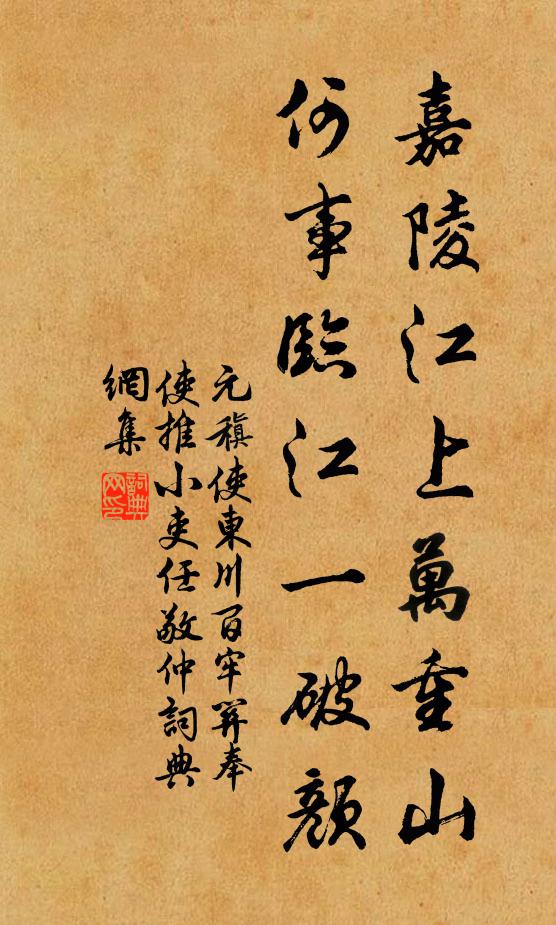 嘉陵江上萬重山
何事臨江一破顏
元稹使東川百牢關奉
使推小吏任敬仲詞典
網集
詞典网印